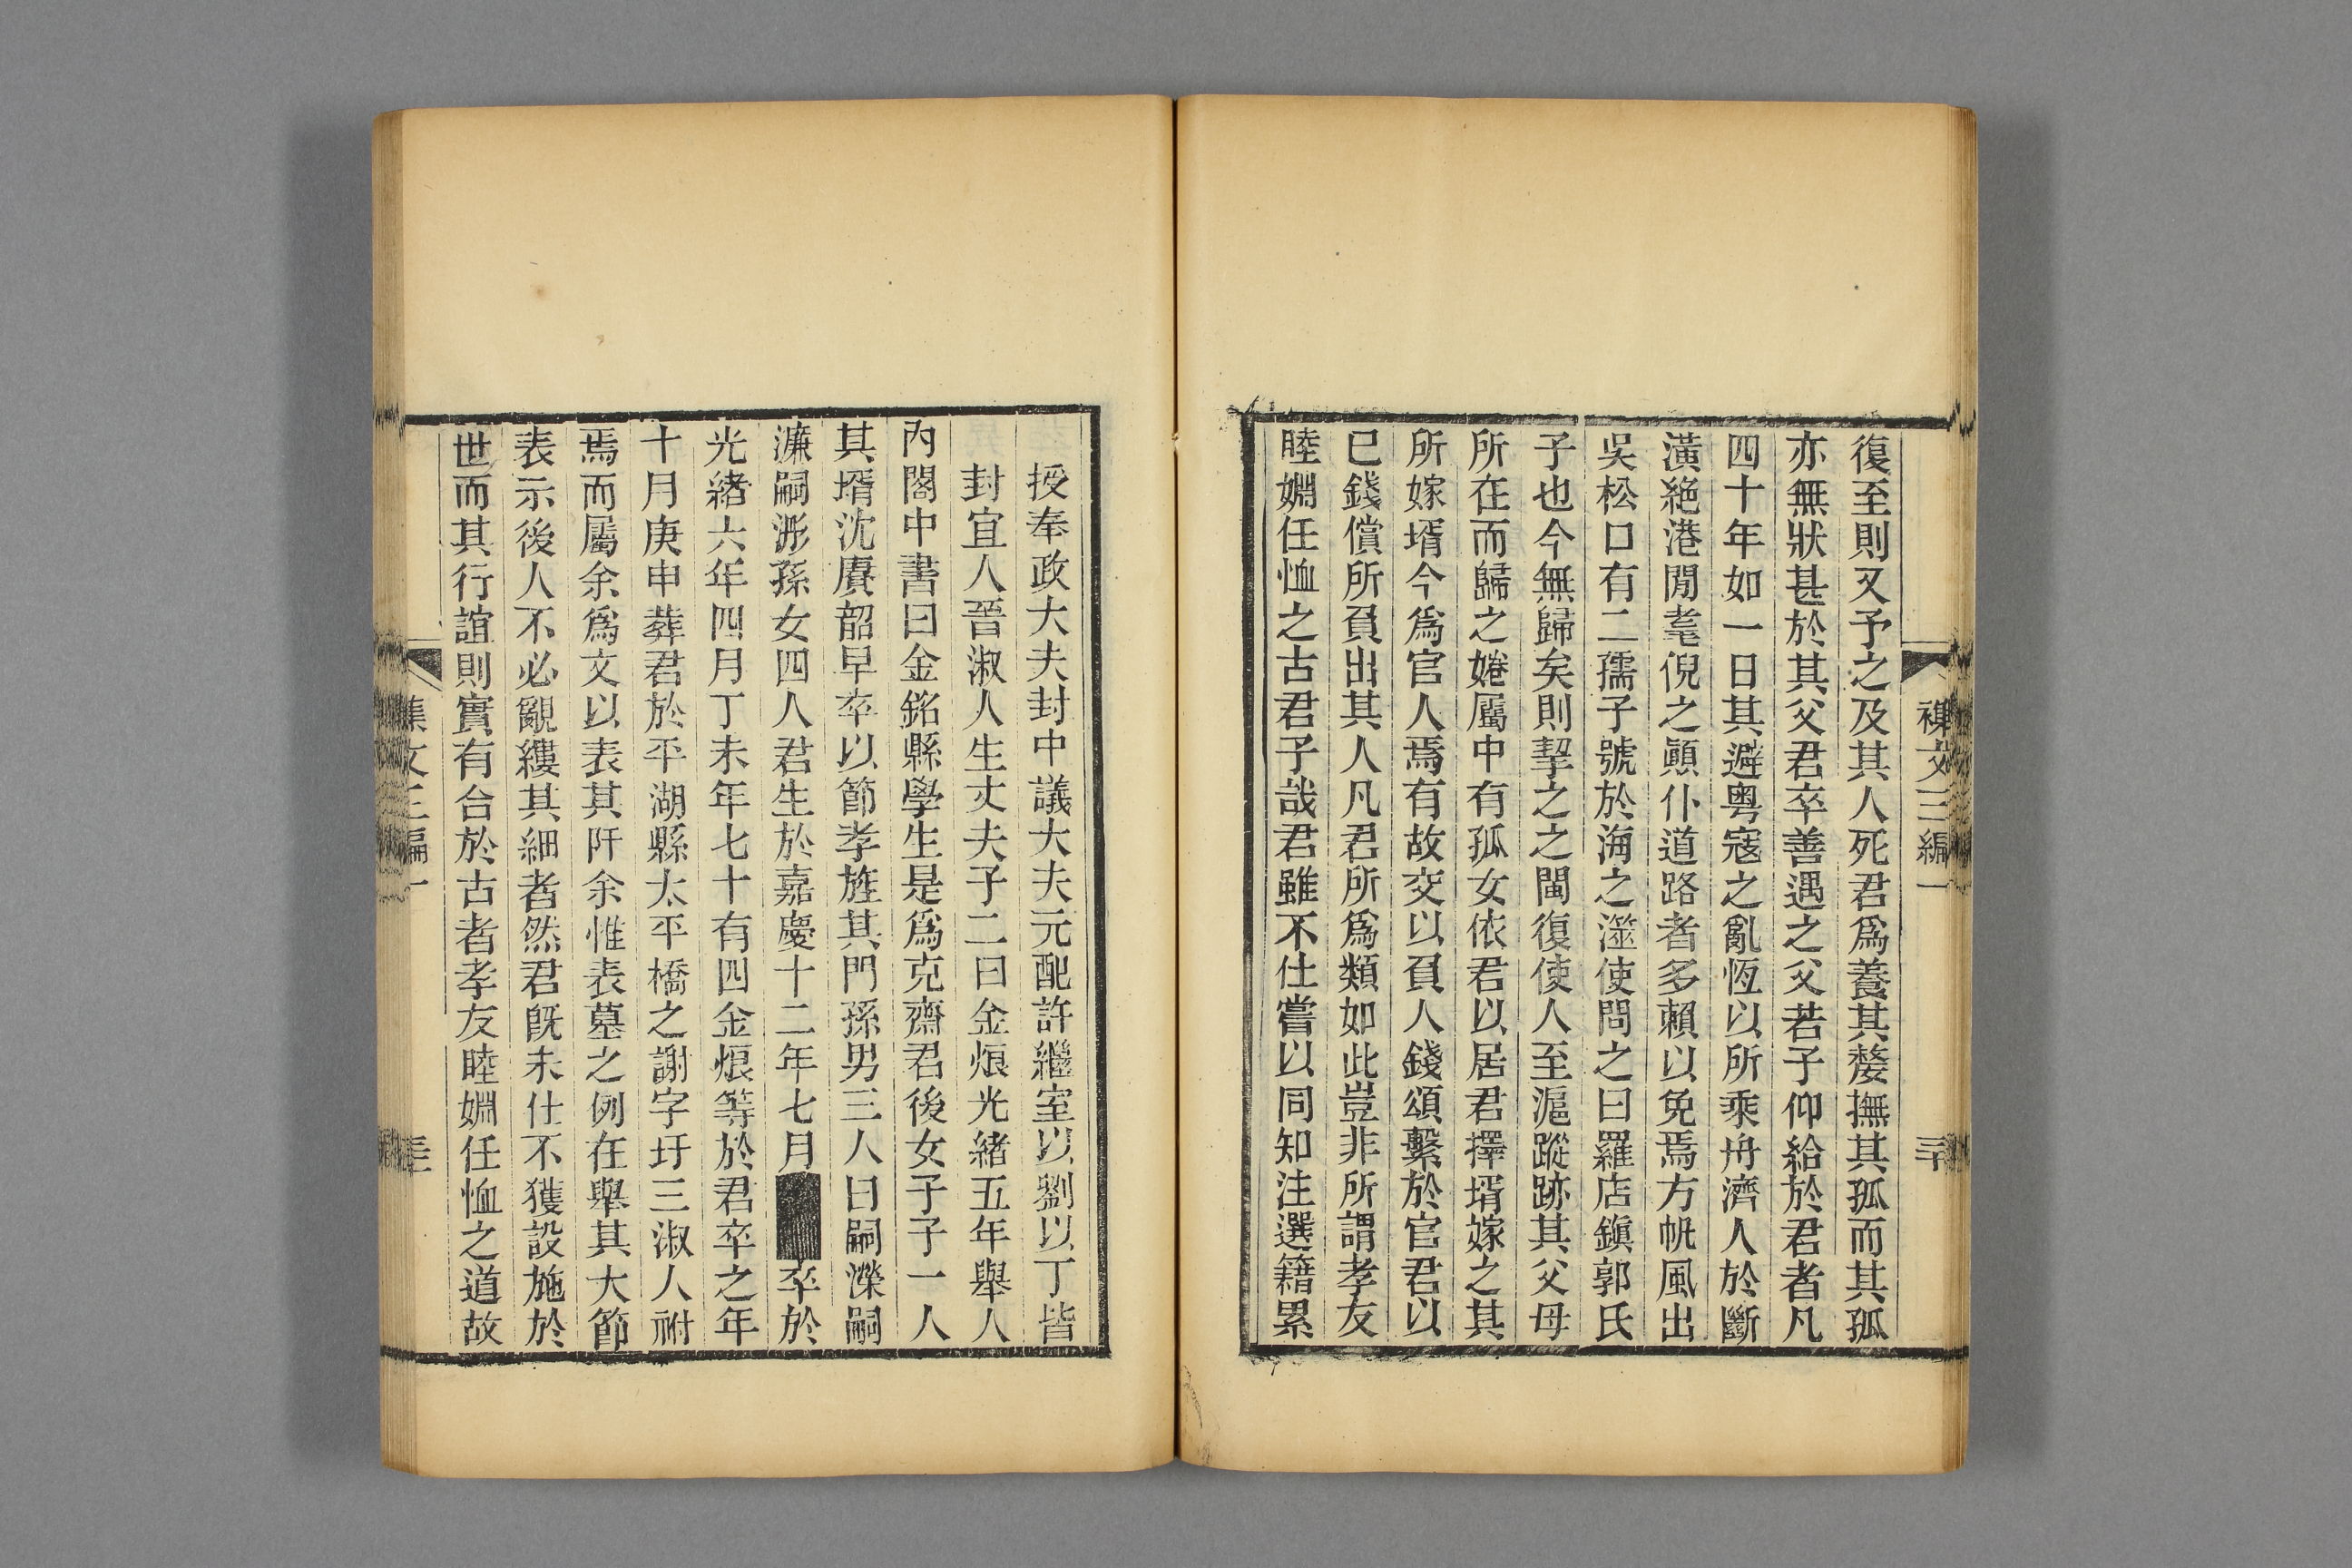 復至則又予之及其人死君爲養其嫠撫其孤而其孤
亦無狀甚於其父君卒善遇之父若子仰給於君者凡
四十年如一日其避粤寇之亂恆以所乘舟濟人於斷
潢絶港閒耄倪之顚仆道路者多賴以免焉方帆風出
吳松口有二孺子號於海之澨使問之曰羅店鎭郭氏
子也今無歸矣則挈之之閩復使人至滬蹤跡其父母
所在而歸之婘屬中有孤女依君以居君擇壻嫁之其
所嫁壻今爲官人焉有故交以負人錢頌繫於官君以
已錢償所負出其人凡君所爲類如此豈非所謂孝友
睦婣任恤之古君子哉君雖不仕嘗以同知注選籍累
襍文三編一
三十
授奉政大夫封中議大夫元配許繼室以劉以丁皆
封宜人晉淑人生丈夫子二曰金烺光緒五年舉人
內閣中書曰金銘縣學生是爲克齋君後女子子一人
其壻沈賡韶早卒以節孝旌其門孫男三人曰嗣濼嗣
濂嗣浵孫女四人君生於嘉慶十二年七月 卒於
光緒六年四月丁未年七十有四金烺等於君卒之年
十月庚申葬君於平湖縣太平橋之謝字圩三淑人祔
焉而屬余爲文以表其阡余惟表墓之例在舉其大節
表示後人不必覶縷其細者然君旣未仕不獲設施於
世而其行誼則實有合於古者孝友睦婣任恤之道故